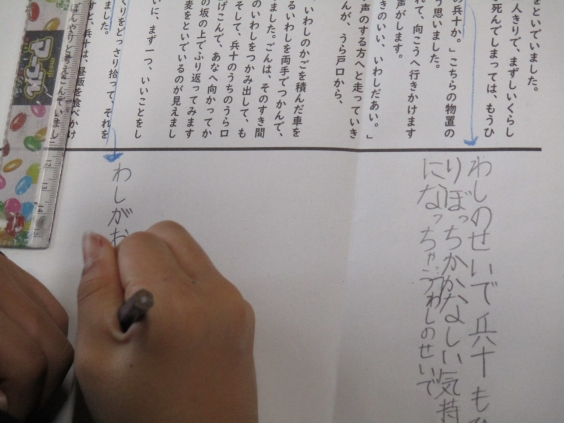 をといでいました。
人きりで、まずしいくらし
死んでしまっては、もうひ
の兵十か。」こちらの物置の
う思いました。
れて、向こうへ行きかけます
声がします。
きのいい、いわしだあい。」
声のする方へと走っていき
んが、うら戸口から、
いわしのかごを積んだ車を
るいわしを両手でつかんで、
ました。ごんは、そのすき間
のいわしをつかみ出して、も
そして、兵十のうちのうら口
げこんで、あなへ向かってか
の坂の上でふり返ってみます
麦をといでいるのが見えまし
いに、まず一つ、いいことをし
くりをどっさり拾って、それを
ました。
すと、兵十は、昼飯を食べかけ
わしのせいで兵十もひ
りぼっちかかなしい気持
になっちゃうわしのせいで
わしがお